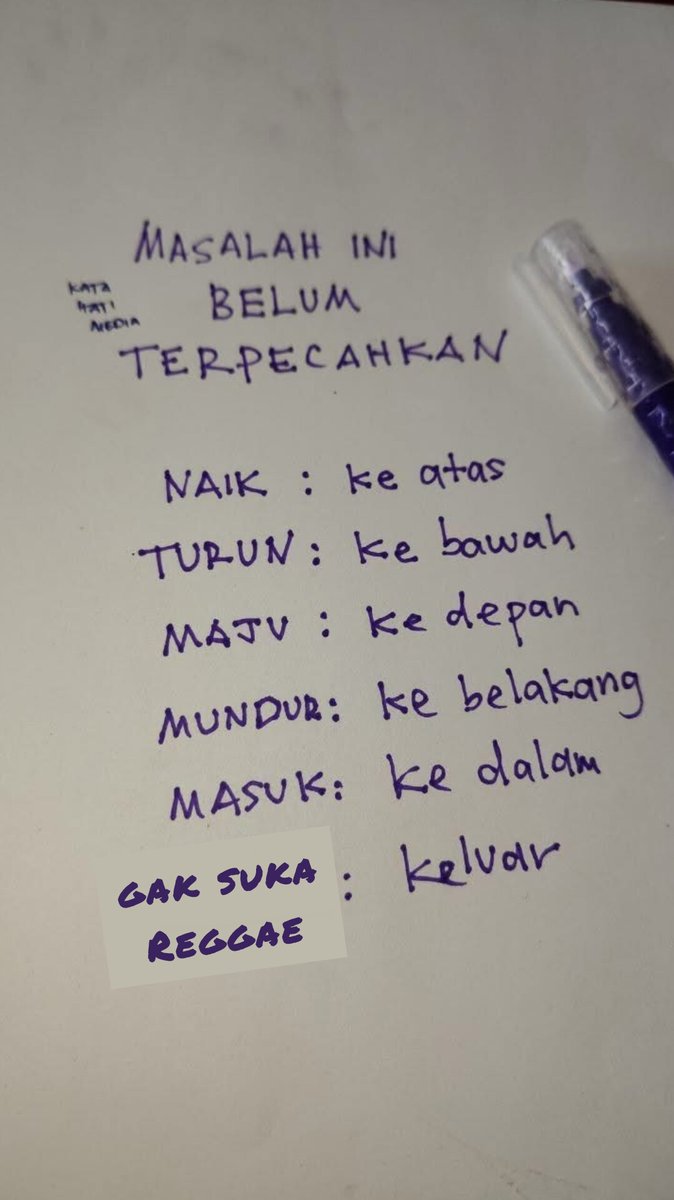 MASALAH INI
BELUM
TERPECAHKAN
KATA
HATI
NEDIA
NAIK : ke atas
TURUN : ke bawah
MAJU : ke depan
MUNDUR : ke belakang
MASUK : ke dalam
GAK SUKA
REGGAE : keluar